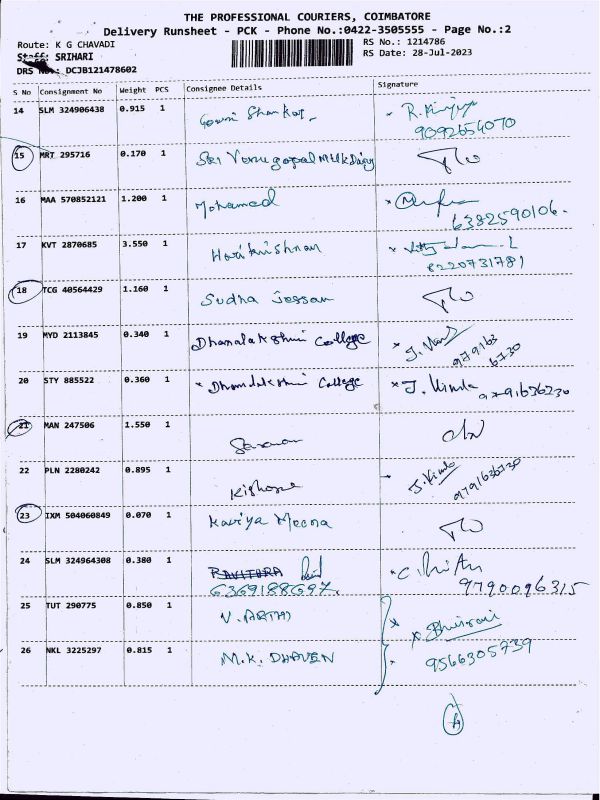 THE PROFESSIONAL COURIERS, COIMBATORE
Delivery Runsheet - PCK - Phone No.:0422-3505555 - Page No.:2
Route: K G CHAVADI
RS No.: 1214786
Staff: SRIHARI
RS Date: 28-Jul-2023
DRS No.: DCJB121478602
S No Consignment No Weight PCS Consignee Details Signature
14 SLM 324906438 0.915 1 Gowri Shankar
9092654070
15 MRT 295716 0.170 1 Sri Venugopal Milk Dairy
16 MAA 570852121 1.200 1 Mohamed
6382590106.
17 KVT 2870685 3.550 1 Harikrishnan
8220731781
18 TCG 40564429 1.160 1 Sudha
19 MYD 2113845 0.340 1 Dhanalakshmi College
979163
6730
20 STY 885522 0.360 1 Dhanalakshmi College
21 MAN 247506 1.550 1
22 PLN 2280242 0.895 1 Kishore
9791636730
23 IXM 504060849 0.070 1 Kaviya Meena
24 SLM 324964308 0.380 1
6369188697. 9790096315
25 TUT 290775 0.850 1 V. ARTHI
26 NKL 3225297 0.815 1 M.K. DHAVEN
9566305739